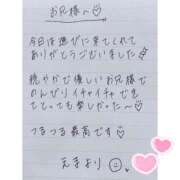 お兄様へ♡
今日は遊びに来てくれて
ありがとうございました
穏やかで優しいお兄様で
のんびりイチャイチャでき
てとっても楽しかった〜♡
つるつる最高です♡
えまより